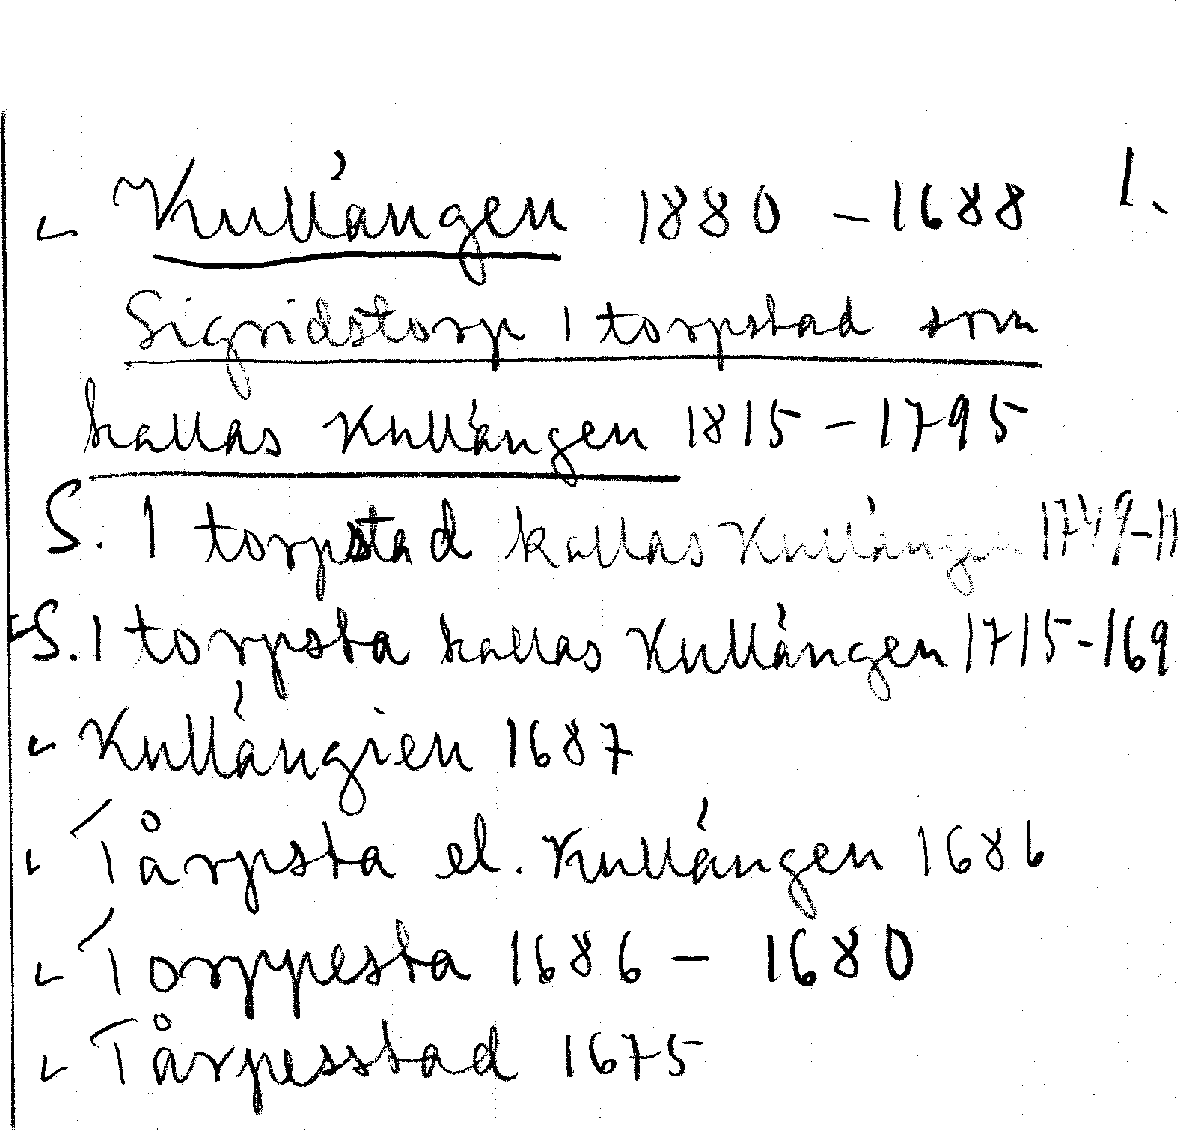 Kullängen 1880 - 1688 1.
Sigridstorp 1 torpstad som
kallas Kullängen 1815 - 1795
S. 1 torpstad kallas Kullängen 1749-11
S. 1 torpsta kallas Kullängen 1715-169
Kullängien 1687
Tårpsta el. Kullängen 1686
Torppesta 1686 - 1680
Tårpesstad 1675